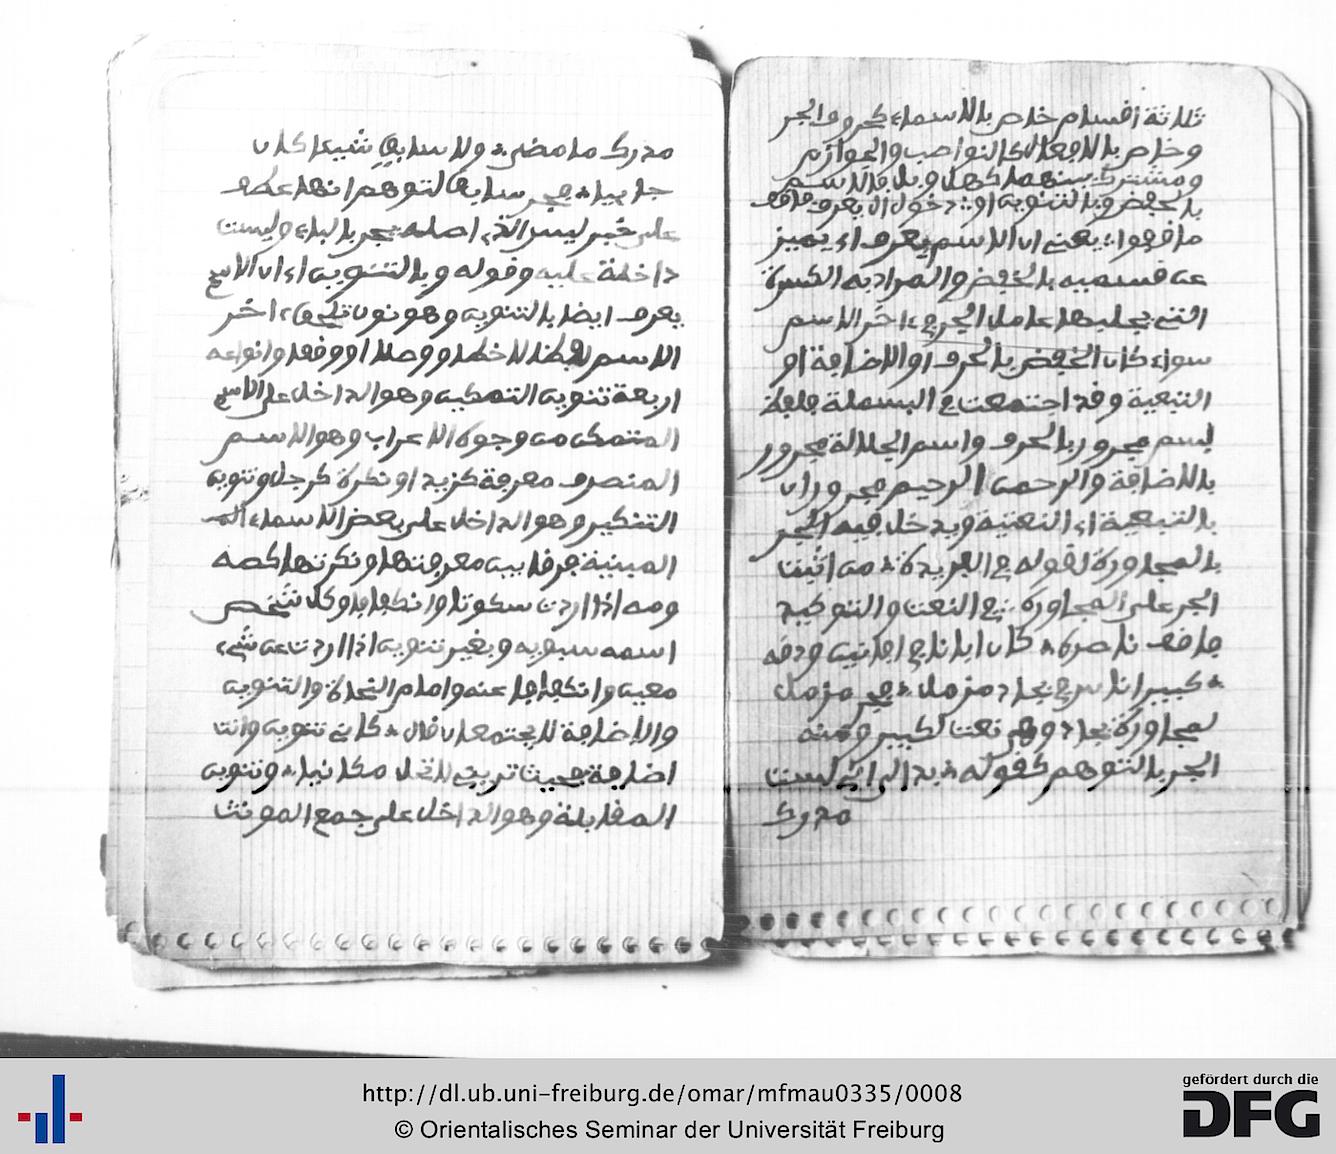 ثلاثة اقسام خاص بالاسماء كحروف الجر
وخاص بالافعال كالنواصب والجوازم
ومشترك بينهما كهل وبل فالاسم
بالخفض وبالتنوين او دخول ال يعرف فاقف
ما قفوا يعني ان الاسم يعرف اي يميز
عن قسميه بالخفض والمراد به الكسرة
التي يجلبها عامل الجر في ءاخر الاسم
سواء كان الخفض بالحرف او الاضافة او
التبعية وقد اجتمعت في البسملة فلفظ
بسم مجرور بالحرف واسم الجلالة مجرور
بالاضافة والرحمن الرحيم مجروران
بالتبعية اي النعتية ويدخل فيه الجر
بالمجاورة لقوله في الفريدة من اثبت
الجر على المجاورة في النعت والتوكيد
فاقف ناصره كان ابانا في افانين ودقه
كبير اناس في بجاد مزمل فجر مزمل
لمجاورة بجاد وهو نعت لكبير ومنه
الجر بالتوهم كقوله بدا لي اني لست
مدرك
مدرك ما مضى ولا سابق شيئا كان
جاييا فجر سابق لتوهم انها عطف
على خبر ليس الذي اصله يجر بالباء وليست
داخلة عليه وقوله وبالتنوين اي ان الاسم
يعرف ايضا بالتنوين وهو نون تلحق ءاخر
الاسم لفظا لا خطا ووصلا او وقفا وانواعه
اربعة تنوين التمكين وهو الداخل على الاسم
المتمكن من وجوه الاعراب وهو الاسم
المنصرف معرفة كزيد او نكرة كرجل وتنوين
التنكير وهو الداخل على بعض الاسماء المـ
المبنية فرقا بين معرفتها ونكرتها كصه
ومه اذا اردت سكوتا وانكفافا وكل شخص
اسمه سبويه وبغير تنوين اذا اردت عن شيء
معين وانكفافا عنه وامام النحاة والتنوين
والاضافة لا يجتمعان قال كاني تنوين وانت
اضافة فحيث تريني لا تحل مكانيا وتنوين
المقابلة وهو الداخل على جمع المونث
http://dl.ub.uni-freiburg.de/omar/mfmau0335/0008
© Orientalisches Seminar der Universität Freiburg
gefördert durch die
DFG